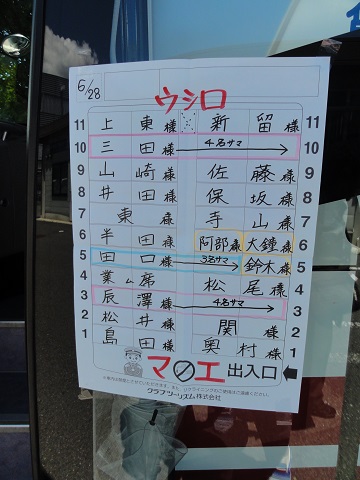 6/28
ウシロ
11 上東様 新留様 11
10 三田様 4名サマ 10
9 山崎様 佐藤様 9
8 井田様 保坂様 8
7 東様 手山様 7
6 半田様 阿部様 大鐘様 6
5 田口様 3名サマ 鈴木様 5
4 業ム席 松尾様 4
3 辰澤様 4名サマ 3
2 松井様 関様 2
1 島田様 奥村様 1
マエ 出入口
クラブツーリズム株式会社